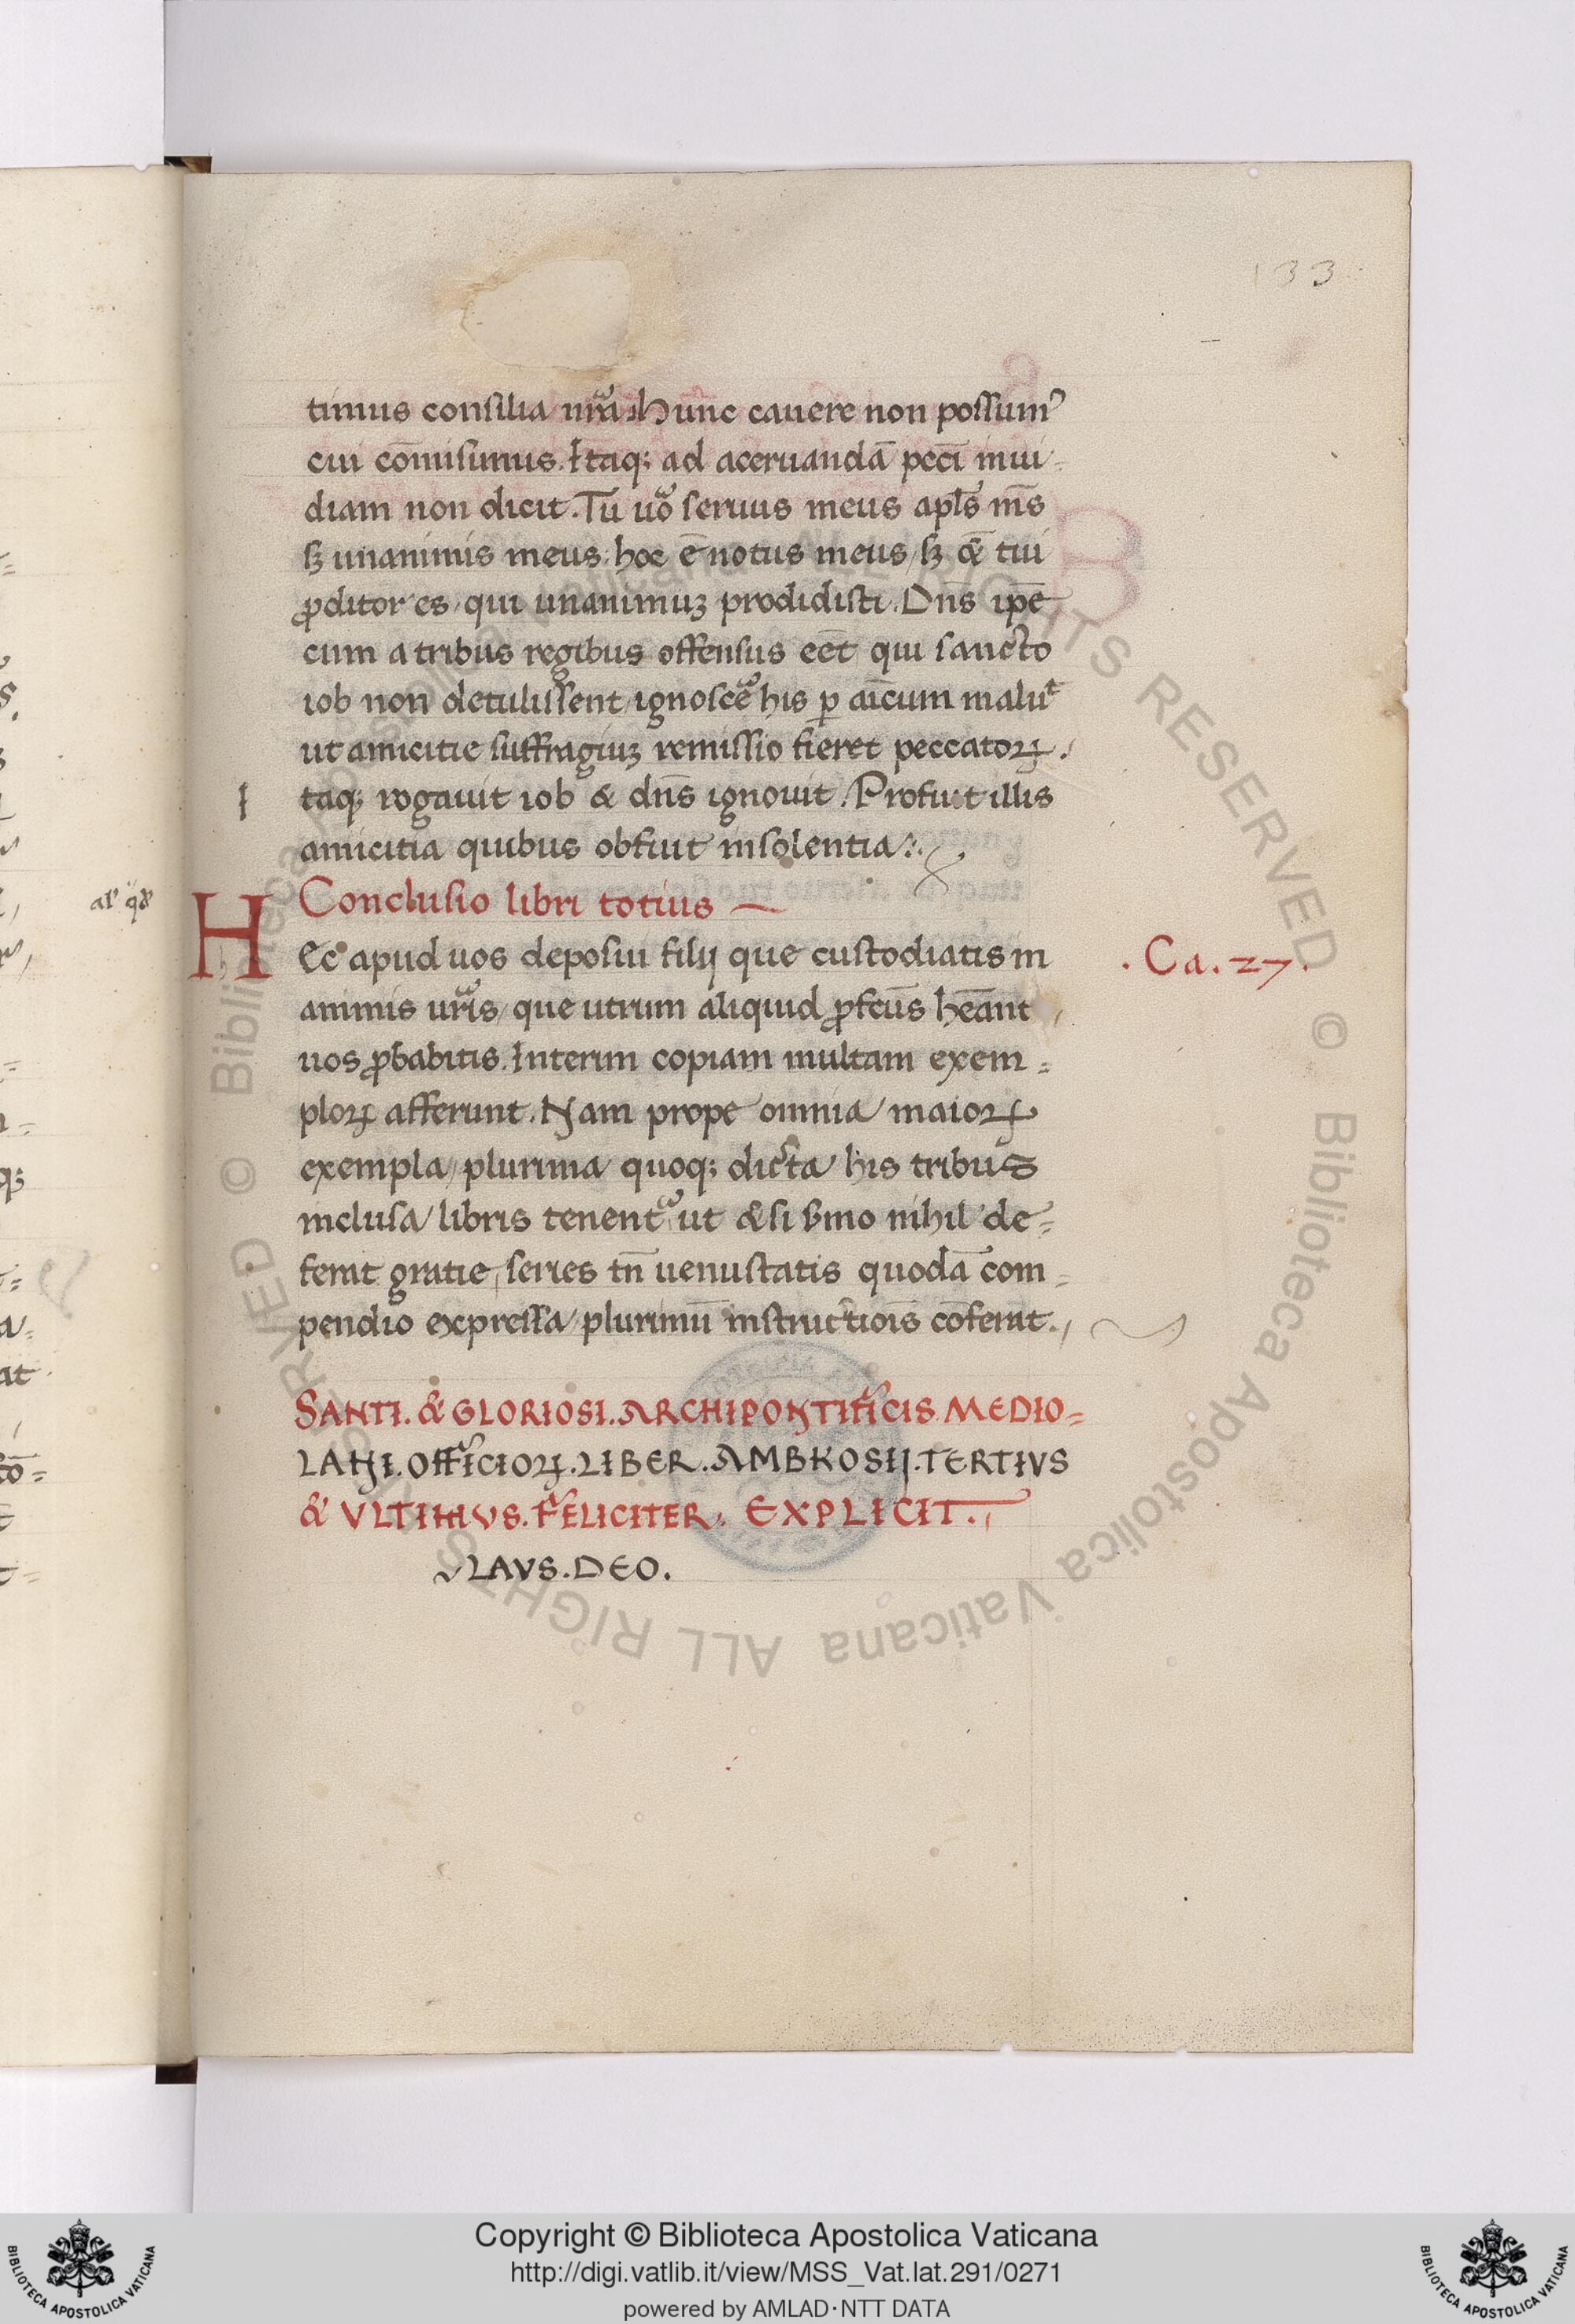 133
timus consilia nr̃a. Hunc cauere non possumꝰ
cui cōmisimus. Itaq; ad aceruandā pecc̄i inui-
diam non dicit. Tu uo͂ seruus meus apl̄s m̄s
sꝫ unanimis meus, hoc ē notus meus, sꝫ & tui
ꝓditor es, qui unanimuꝫ prodidisti. Dn̄s ip̄e
cum a tribus regibus offensus eēt, qui sancto
iob non detulissent, ignosce͂ his ꝑ aīcum maluᵗ
ut amicitie suffragiuꝫ remissio fieret peccatoꝝ.
I taq; rogauit iob & dn̄s ignouit. Profuit illis
amicitia quibus obfuit insolentia.
Conclusio libri totius
H Ec apud uos deposui filij que custodiatis in
animis ur̃is, que utrum aliquid ꝓfcūs hēant
uos ꝓbabitis. Interim copiam multam exem=
ploꝝ afferunt. Nam prope omnia maioꝝ
exempla, plurima quoq; dicta his tribus
inclusa libris tenent͂ ut & si ẜmo nihil de=
ferat gratie, series tn̄ uenustatis quodā com=
pendio expressa, plurimū instructiōis cōferat.
.Ca.27.
SANTI. & GLORIOSI. ARCHIPONTIFICIS MEDIO=
LANI. OFFICIOꝝ. LIBER. AMBROSIJ. TERTIVS
& VLTIMVS. FELICITER. EXPLICIT.
LAVS. DEO.
© Biblioteca Apostolica Vaticana ALL RIGHTS RESERVED
© Biblioteca Apostolica Vaticana ALL RIGHTS RESERVED
Copyright © Biblioteca Apostolica Vaticana
http://digi.vatlib.it/view/MSS_Vat.lat.291/0271
powered by AMLAD·NTT DATA
BIBLIOTECA APOSTOLICA VATICANA
BIBLIOTECA APOSTOLICA VATICANA